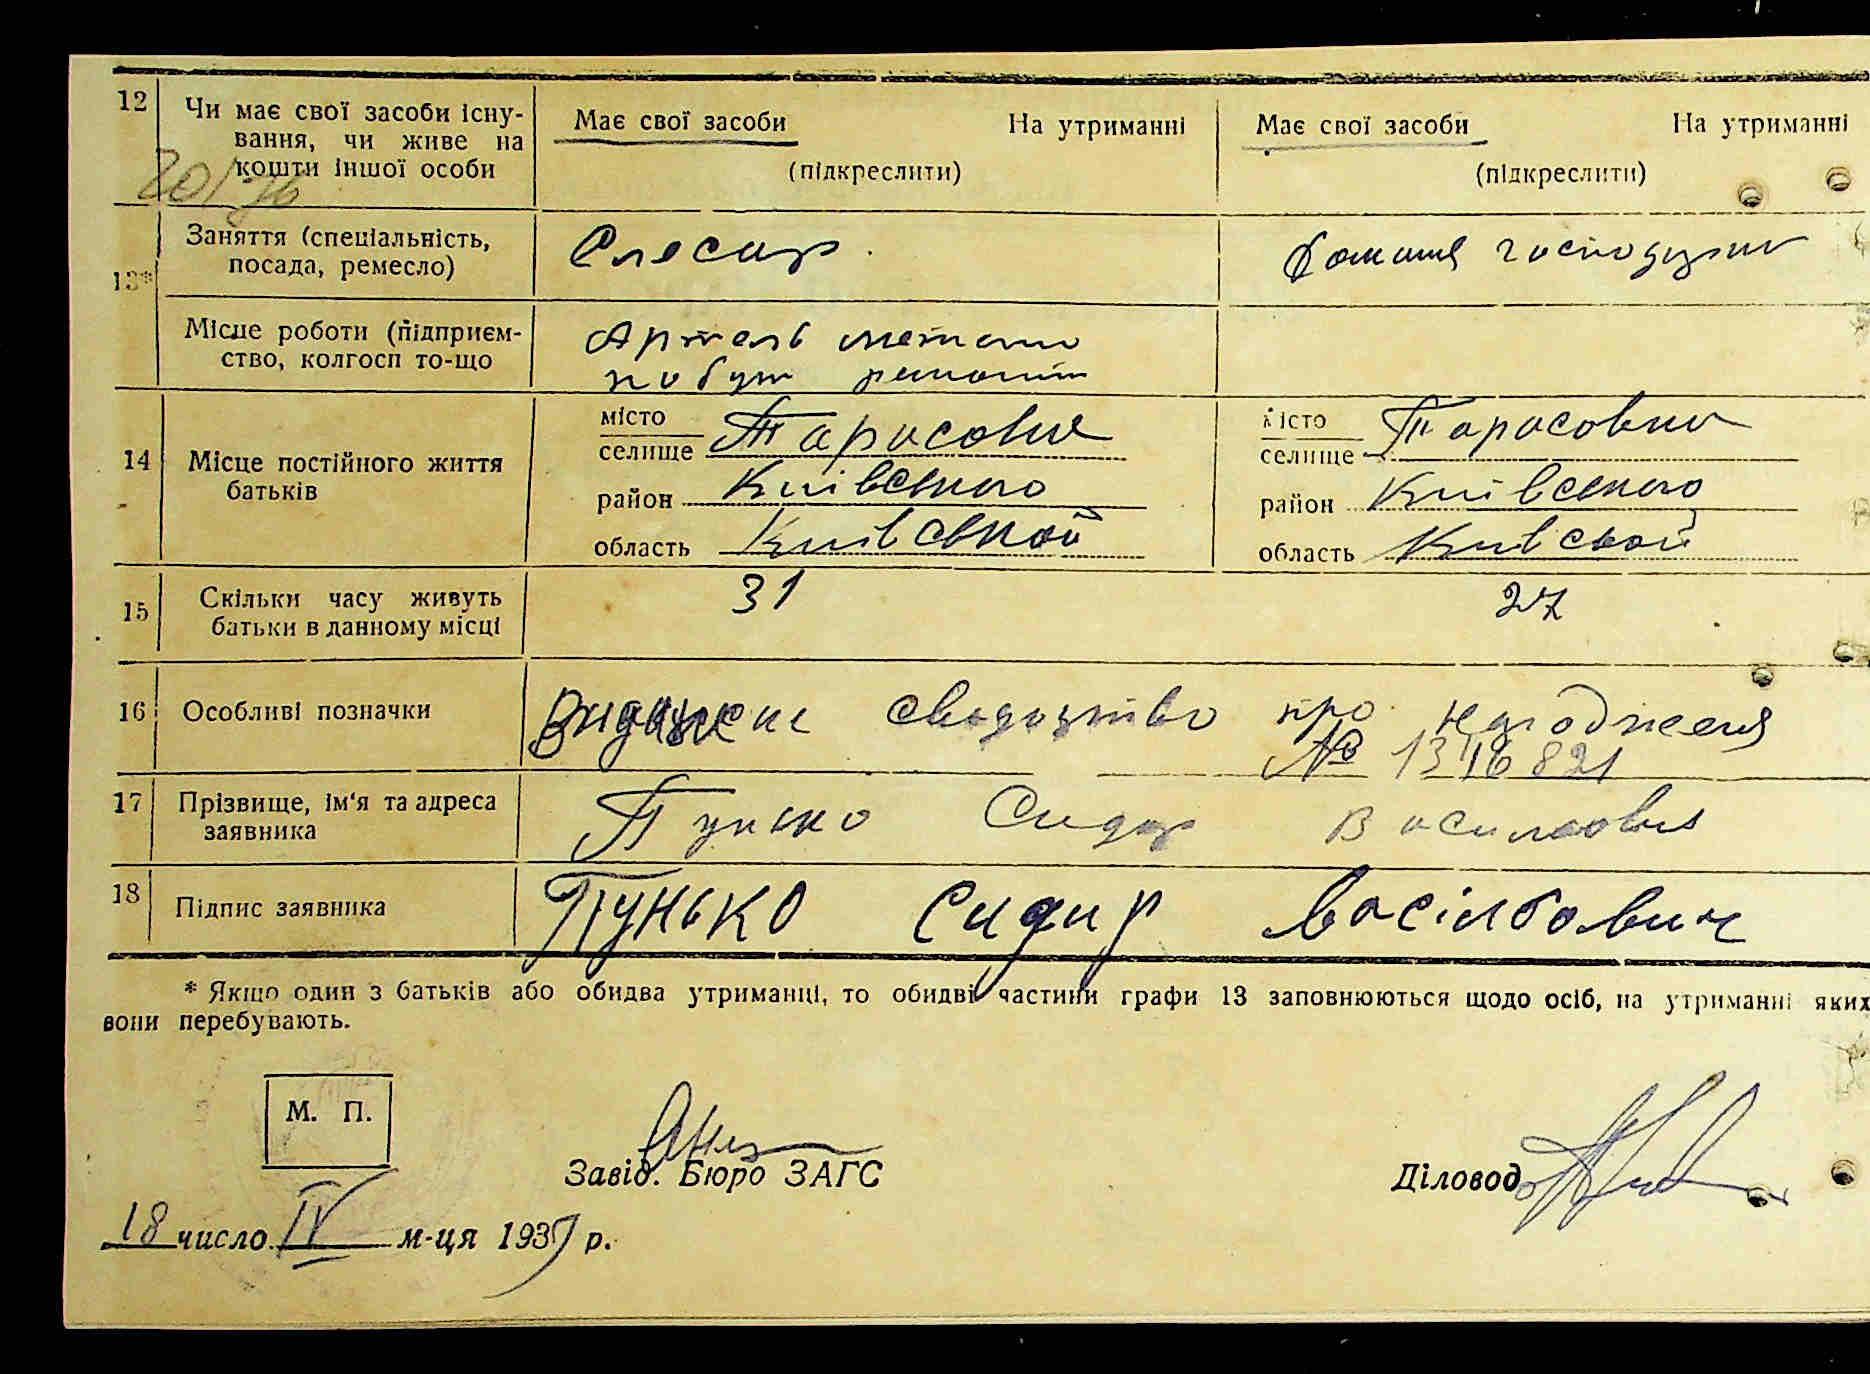 12 Чи має свої засоби існу-
вання, чи живе на
кошти іншої особи
Має свої засоби На утриманні
(підкреслити)
Має свої засоби На утриманні
(підкреслити)
13* Заняття (спеціальність,
посада, ремесло)
Слесар
домашня господарка
Місце роботи (підприєм-
ство, колгосп то-що
Артель метало
побут ремонт
14 Місце постійного життя
батьків
місто
селище Тарасовка
район Київського
область Київськой
місто
селище Тарасовка
район Київського
область Київской
15 Скільки часу живуть
батьки в данному місці
31
27
16 Особливі позначки
свидоцтво про народження
№ 1316821
17 Прізвище, ім'я та адреса
заявника
Пунько Сидор Василович
18 Підпис заявника
Пунько Сидир Васільович
* Якщо один з батьків або обидва утриманці, то обидві частини графи 13 заповнюються щодо осіб, на утриманні яких
вони перебувають.
М. П.
Завід. Бюро ЗАГС
Діловод
18 число IV м-ця 1937 р.